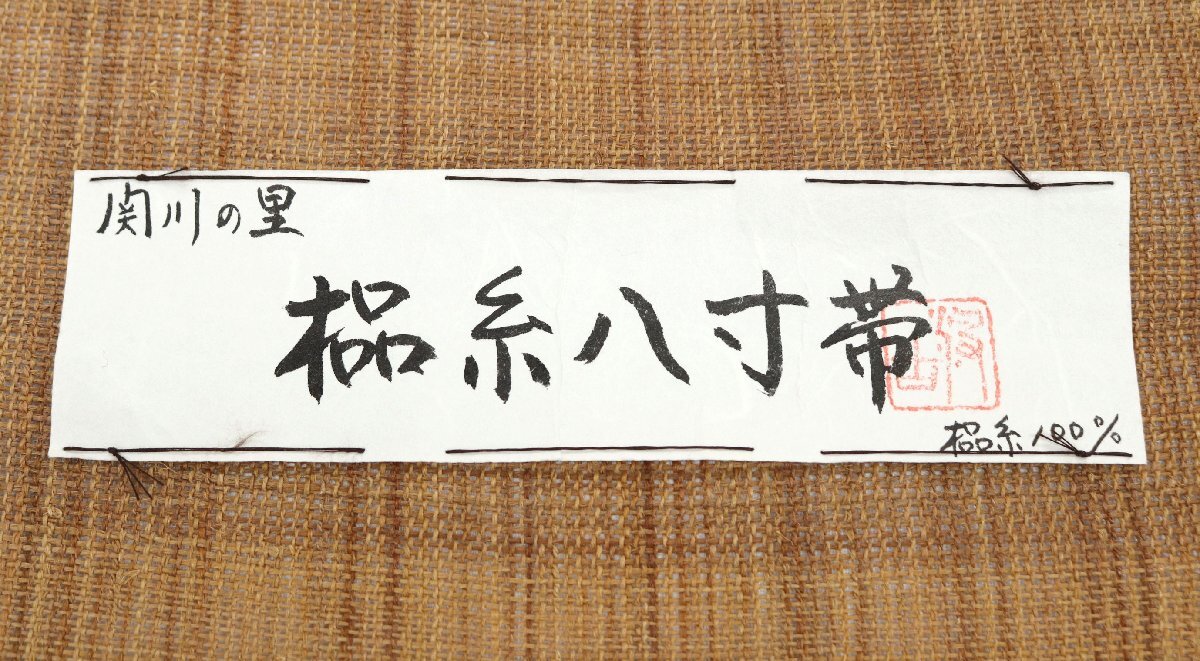 関川の里
榀糸八寸帯
榀糸100%